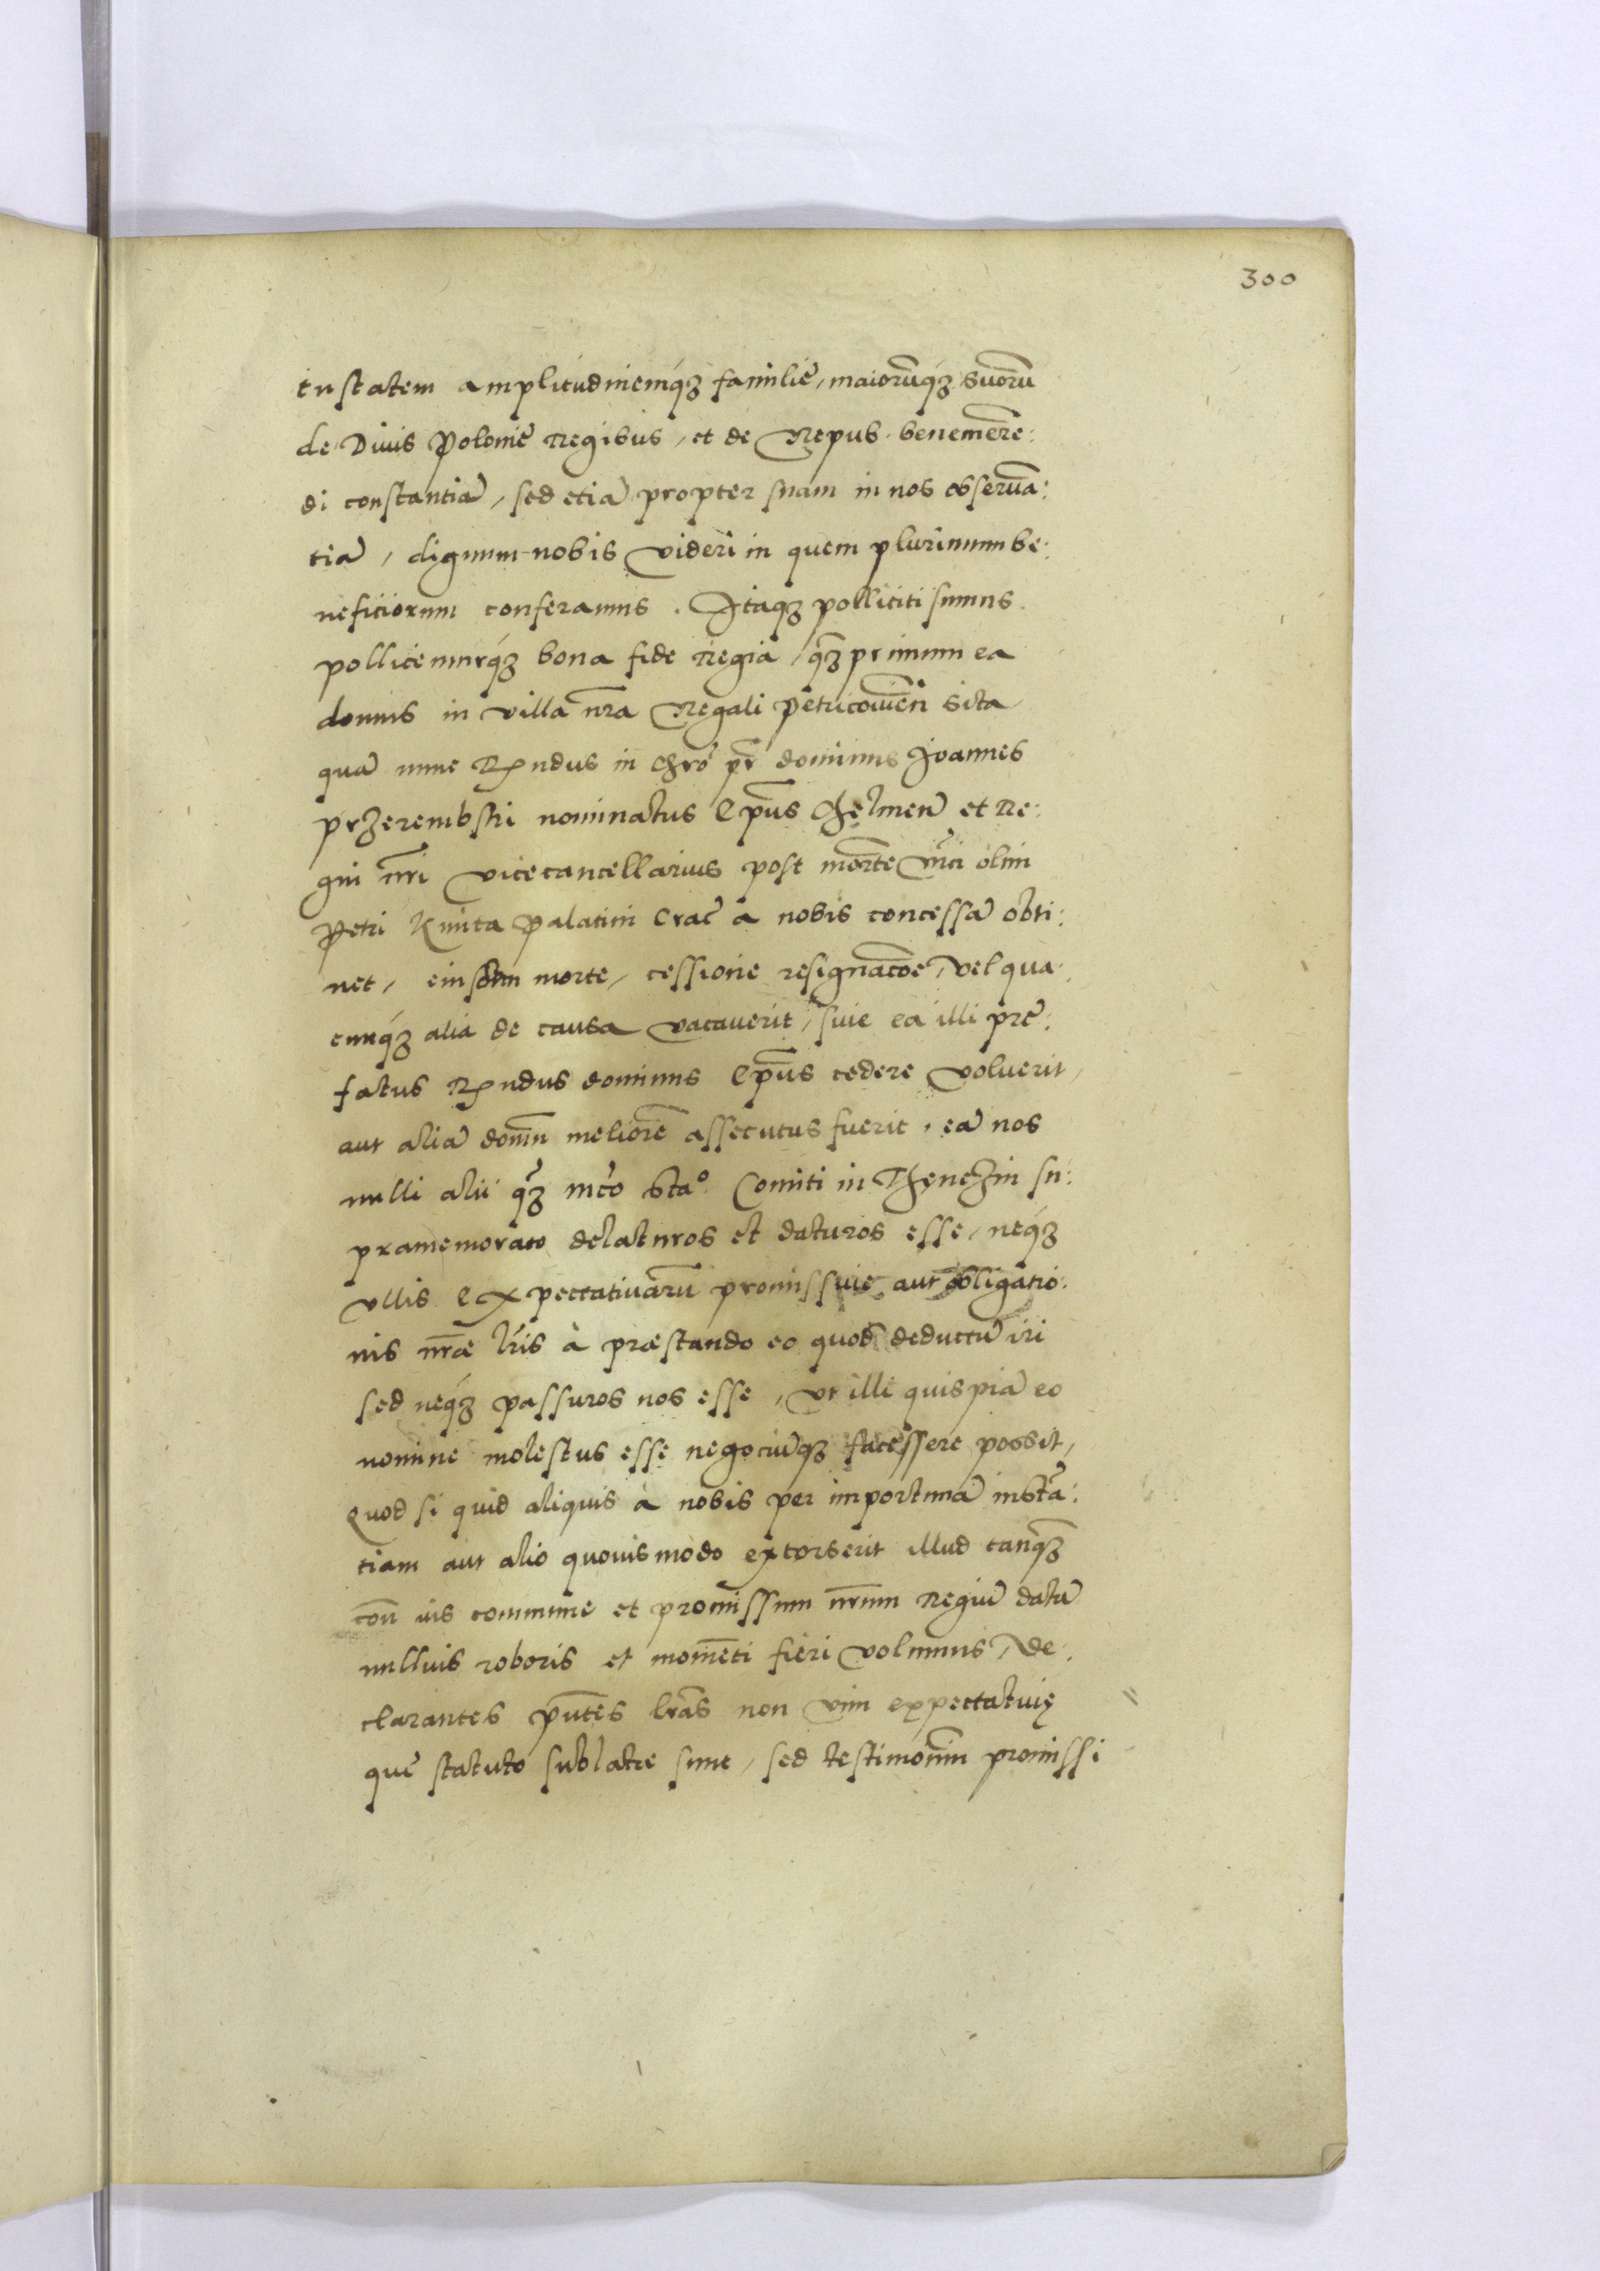 300
tustatem amplitudinemq́ꝫ familię, maiorūq́ꝫ suorū
de Divis Polonię Regibus, et de Repub. benemerē:
di constantiā, sed etiā propter suam in nos observā:
tiā, dignum nobis videri in quem plurimum be:
neficiorum conferamus. Itaqꝫ polliciti sumus
pollicemurq́ꝫ bona fide Regia, qꝫ̄primum ea
domus in villa nrā Regali Petricoviēn sita
quā nunc Rndus in Chrō pr̄ dominus Joannes
Przerembski nominatus Ep̄us Chelmen̄ et Re:
gni nrī Vicecancellarius post mortē Mci olim
Petri Kmita Palatini Crac̄ a nobis concessā obti:
net, eiusdem morte, cessione resignacōe, vel qua
cunq́ꝫ alia de causa vacaverit, sive eā illi prę:
fatus Rndus dominus Ep̄us cedere voluerit,
aut aliā domū meliorē assecutus fuerit, eā nos
nulli alii qꝫ̄ mcō Sta⁰ Comiti in Thenczin su:
pramemorato delaturos et daturos esse, neq́ꝫ
ullis Expectativarū promissivę aut obligatio:
nis nrāe lrīs à præstando eo quod deductū iri
sed neq́ꝫ passuros nos esse, ut illi quispiā eo
nomine molestus esse negociūqꝫ facessere possit,
Quod si quid aliquis à nobis per importunā instā:
tiam aut alio quovis modo extorserit illud tanqꝫ̄
con̄ ius commune et promissum nrūm Regiū datū
nullius roboris et momēti fieri volumus, De:
clarantes pn̄tes lrās non vim expectativę
quę statuto sublatę sunt, sed testimoniū promissi